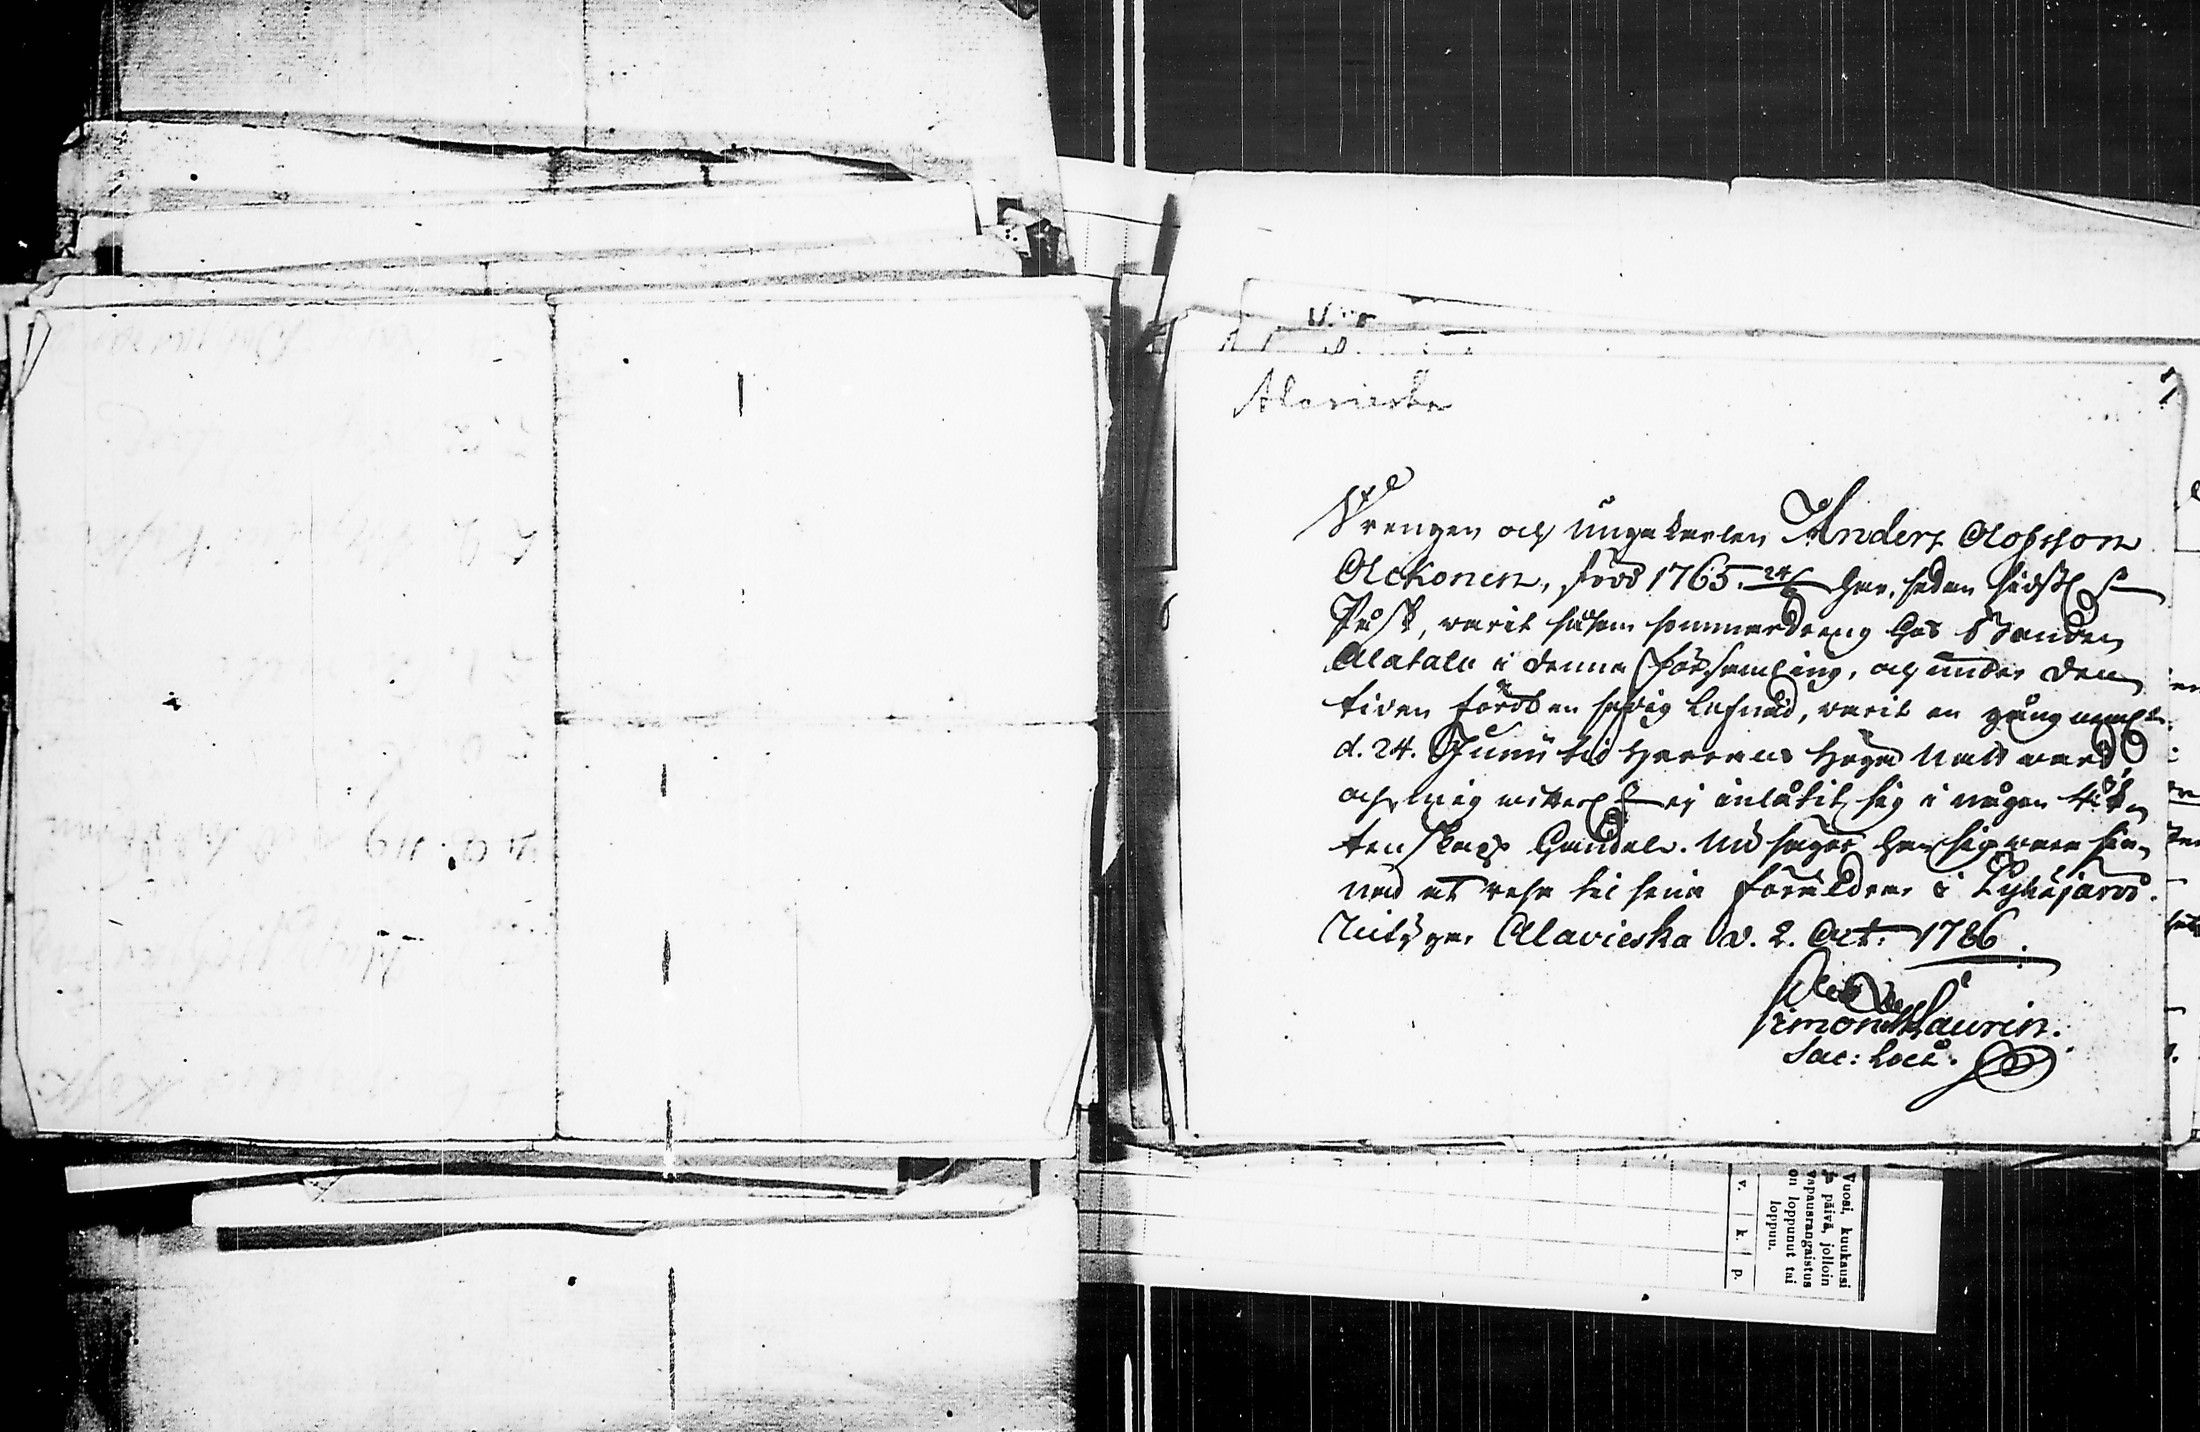 Alavieska
Drengen och unga karlen Anders Olofsson
Ackonen, född 1765. 24/6 har, sedan sidstl.
Påsk, varit såsom sommardreng hos Bonden
Alatalo i denna församling, och under den
tiden fördt en sedig lefnad, varit en gång
d. 24. Junii til Herrans Höga Nattvard,
och mig vitterl. ej inlåtit sig i någon
tenskaps handel. Nu säger han sig vara sin-
nad at resa til sina föräldrar i Pyhäjärvi.
Attesterar Alavieska d. 2. Oct. 1786.
Simon Laurin.
Sac: Loci.
Vuosi, kuukausi
ja päivä, jolloin
vapausrangaistus
on loppunut tai
loppuu.
v. k. p.